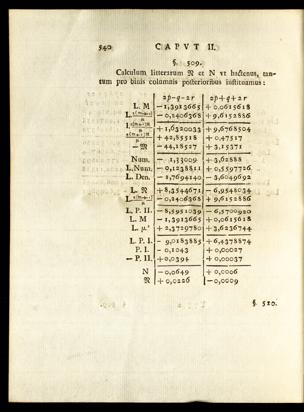 540 CAPVT II.
§. 509.
Calculum litterarum 𝔑 et N vt hactenus, tan-
tum pro binis columnis posterioribus instituamus:
2p-q-2r | 2p+q+2r
L. M | -1,3913665 | +0,0615618
-0,1406368 | +9,6152886
+1,6320033 | +9,6768504
+42,85518 | +0,47517
-𝔑 | +44,18527 | +3,15371
Num. | -1,33009 | +3,62888
L. Num. | -0,1238811 | +0,5597726
L. Den. | -1,7694140 | -3,6049692
L. 𝔑 | +8,3544671 | -6,9548034
-0,1406368 | +9,6152886
L. P. II. | -8,5951039 | -6,5700920
L. M | -1,3913665 | +0,0615618
L. μ' | +2,3729780 | +3,6236744
L. P. I. | -9,0183885 | +6,4378874
P. I. | -0,1043 | +0,00027
-P. II. | +0,0394 | +0,00037
N | -0,0649 | +0,0006
𝔑 | +0,0226 | -0,0009
§. 510.